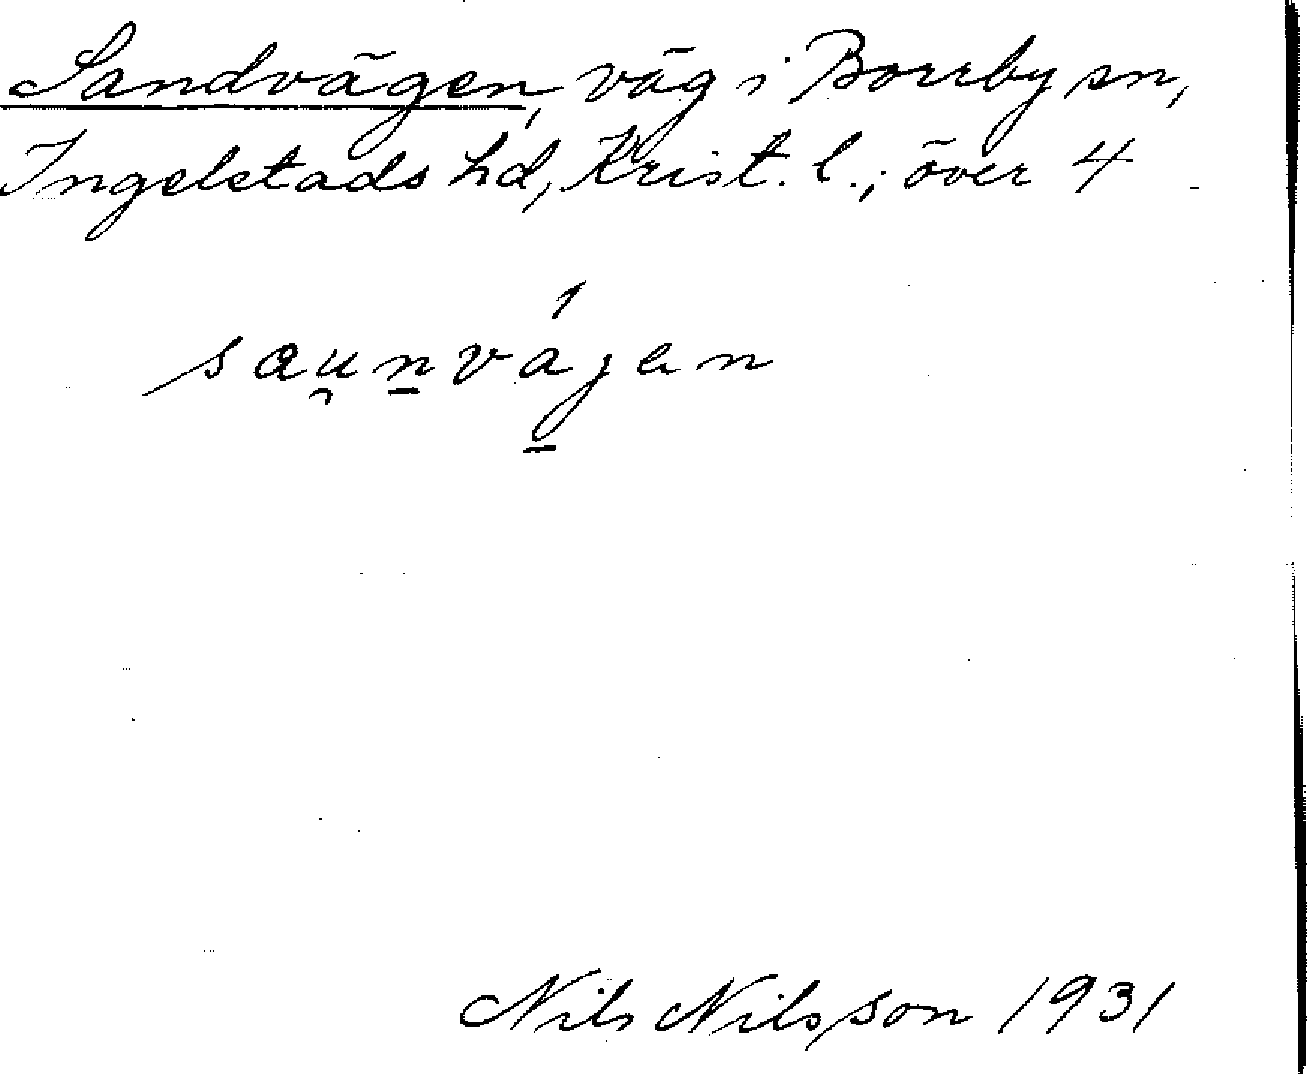 Sandvägen, väg i Borrby sn,
Ingelstads hd, Krist. l.; över 4
sau̯n̲vá̲jen
Nils Nilsson 1931